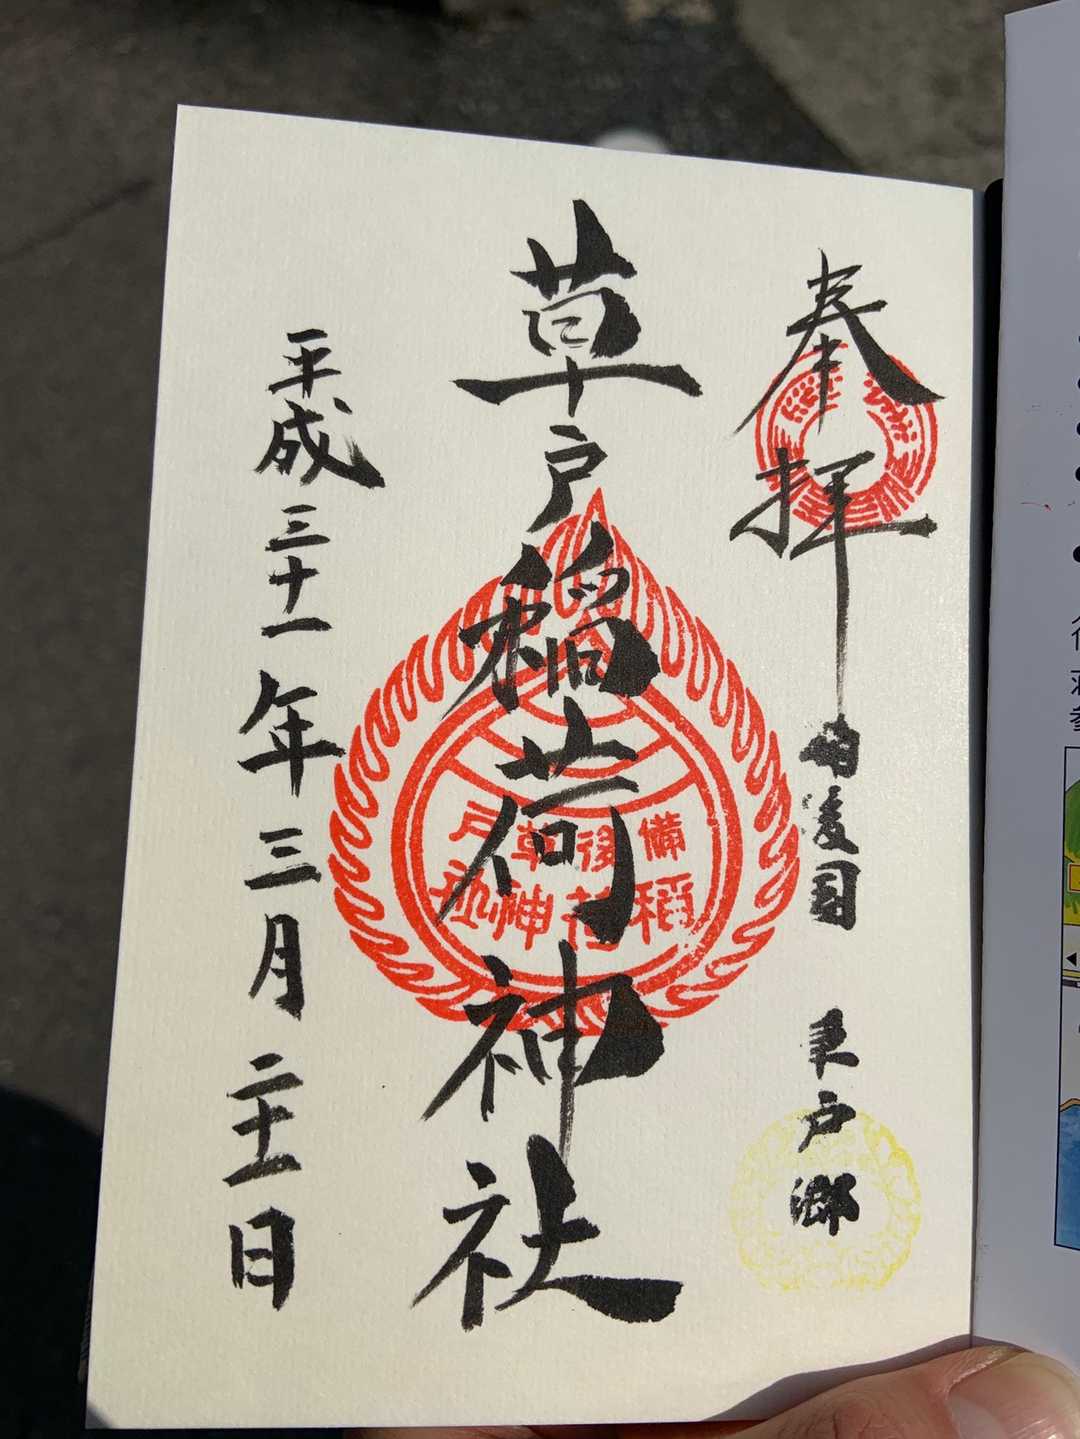 奉拝
備後国 草戸郷
草戸稲荷神社
備後草戸
稲荷神社
平成三十一年三月二十一日